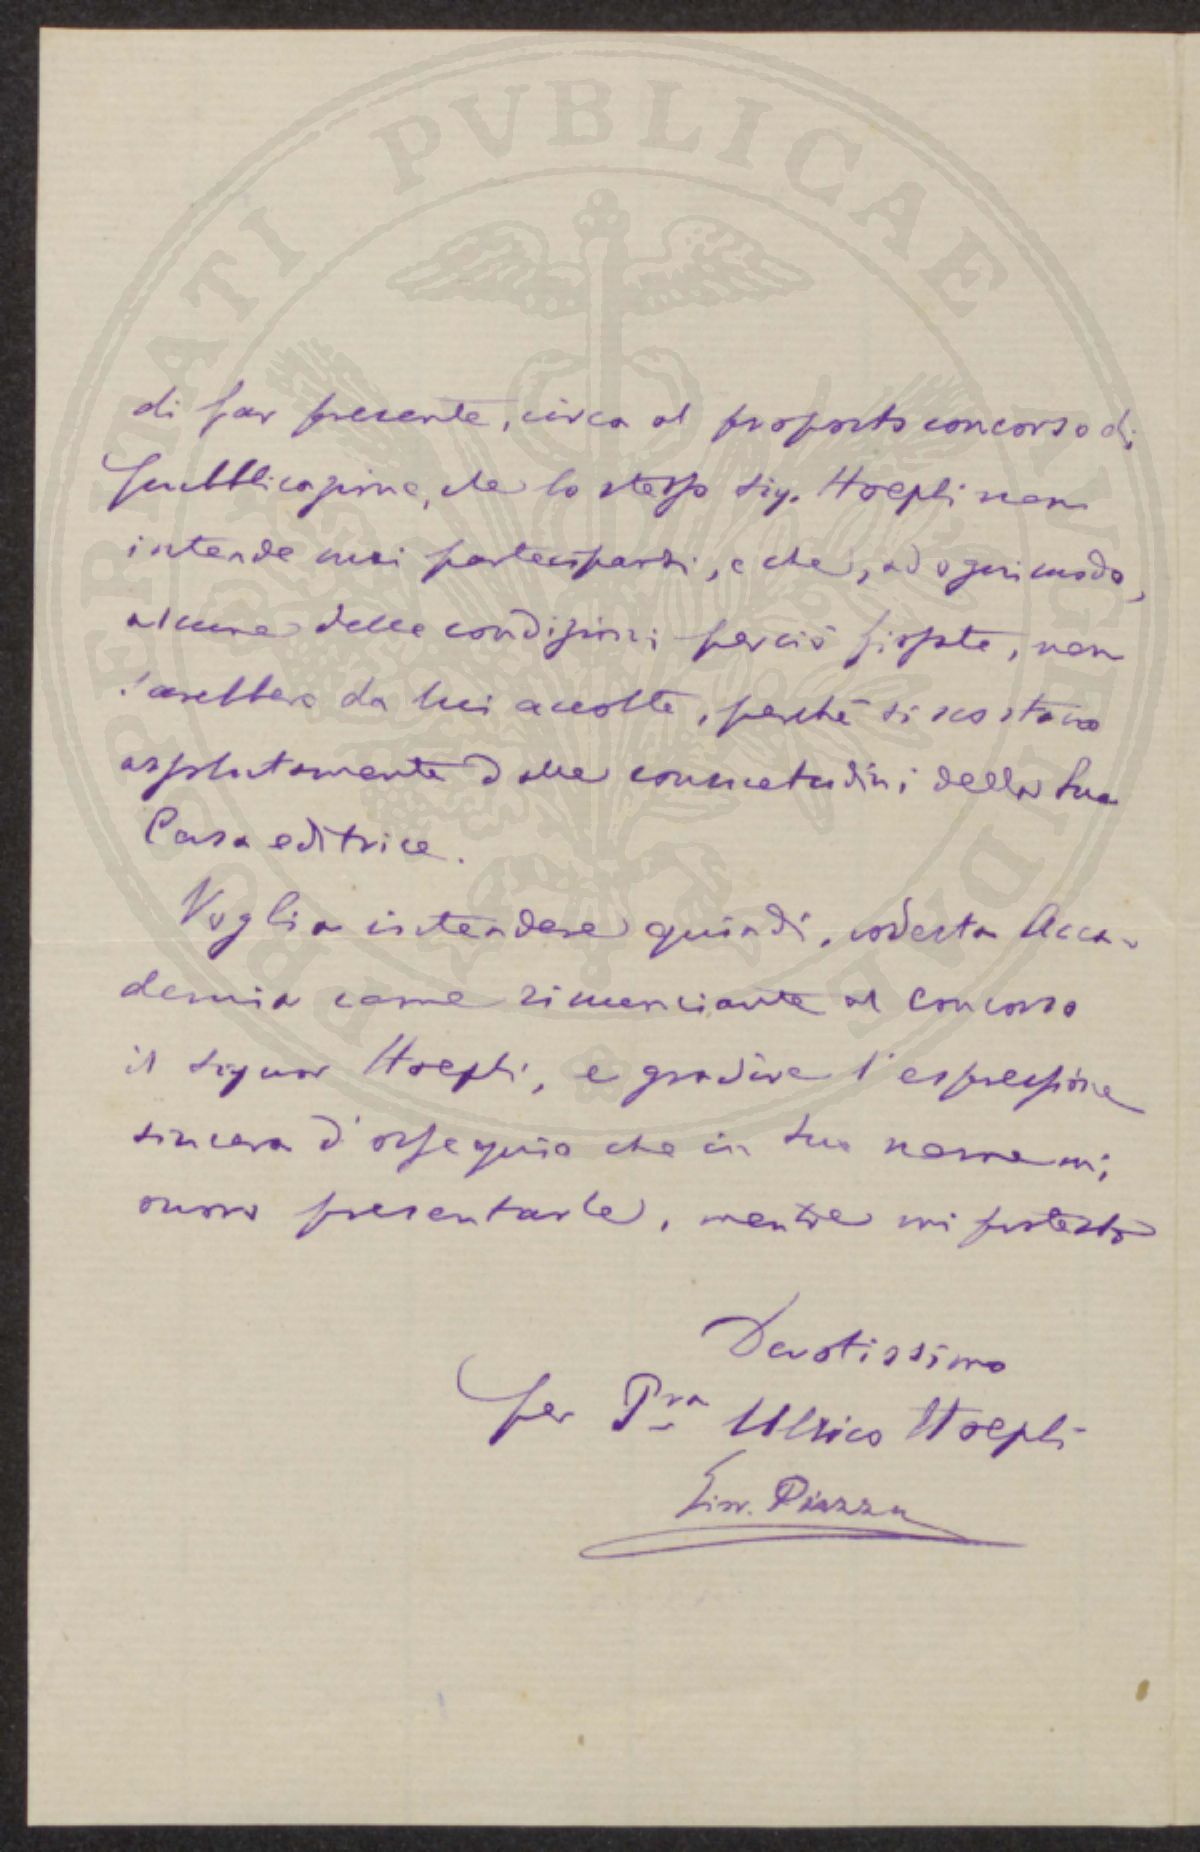 PROSPERITATI PVBLICAE AVGENDAE
di far presente, circa al proposto concorso di
pubblicazione, che lo stesso Sig. Hoepli non
intende mai parteciparvi, e che, ad ogni modo,
alcune delle condizioni perciò fissate, non
sarebbero da lui accolte, perchè si scostano
assolutamente dalle consuetudini della Sua
Casa editrice.
Voglia intendere quindi, codesta Acca-
demia come rinunciante al Concorso
il Signor Hoepli, e gradire l'espressione
sincera d'ossequio che in Suo nome mi
onoro presentarle, mentre mi protesto
Devotissimo
per Pra Ulrico Hoepli
Piazza